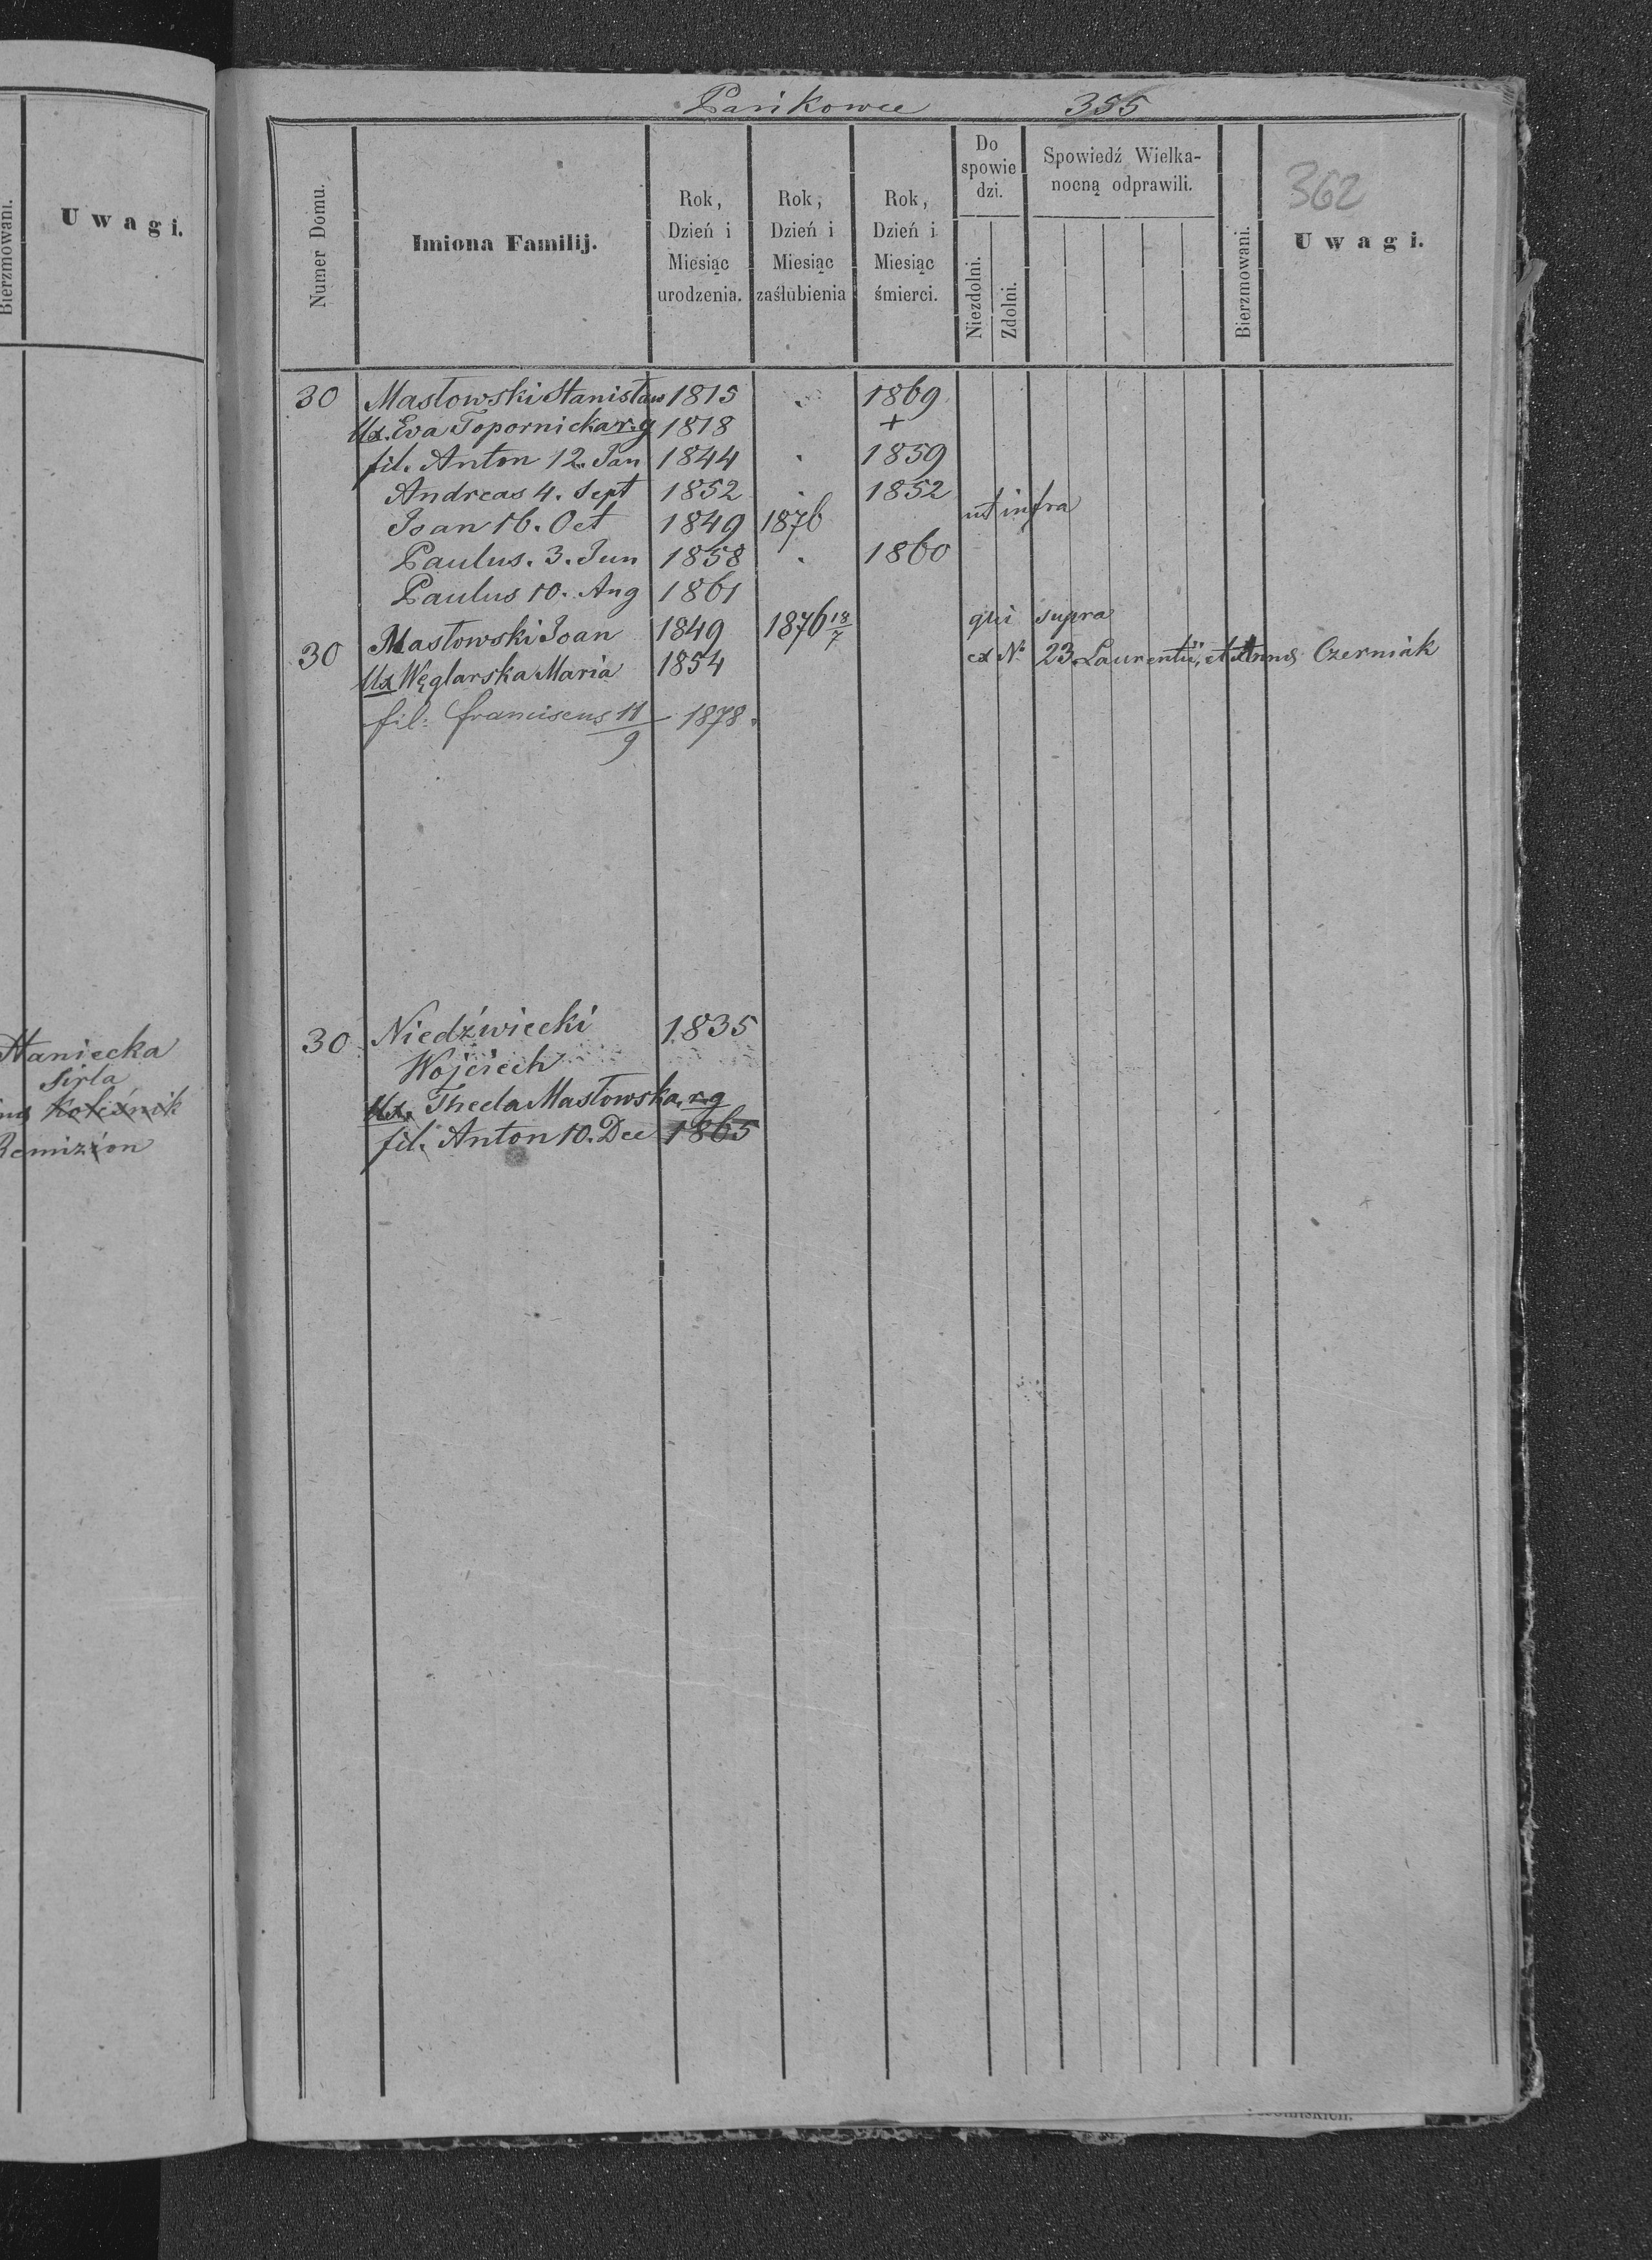 Bierzmowani.
U w a g i.
Haniecka
Sirla
Kolesnik
Remizion
Pańkowce 355
Numer Domu.
Imiona Familij.
Rok, Dzień i Miesiąc urodzenia.
Rok, Dzień i Miesiąc zaślubienia
Rok, Dzień i Miesiąc śmierci.
Do spowie dzi.
Niezdolni.
Zdolni.
Spowiedź Wielka-
nocną odprawili.
Bierzmowani.
362
U w a g i.
30 Masłowski Stanisław 1815 . 1869
Ux. Eva Topornicka r.g 1818 +
fil. Anton 12. Jan 1844 . 1859
Andreas 4. Sept 1852 . 1852
Joan 16. Oct 1849 1876 ut infra
Paulus. 3. Jun 1858 . 1860
Paulus 10. Aug 1861
30 Masłowski Joan 1849 1876 18/7 qui supra
Ux Węglarska Maria 1854 ex No 23 Laurentii, et Annæ Czerniak
fil: franciscus 11/9 1878.
30 Niedźwiecki 1835
Wojciech
Ux. Thecla Masłowska r.g
fil. Anton 10. Dec 1865